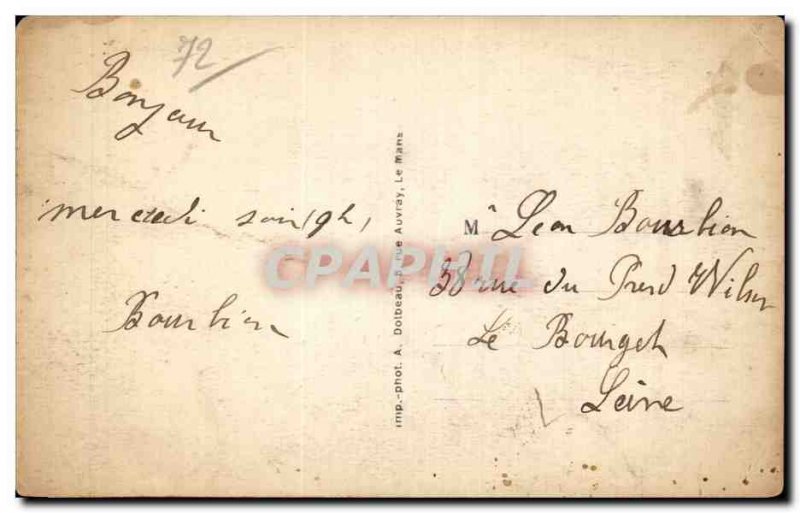 72
Bonjour
mercredi soir (9h)
Bourlier
Imp.-phot. A. Dolbeau, rue Auvray, Le Mans
Mr Léon Bourlier
38 rue du Presd Wilson
Le Bourget
Seine
CPAPHIL